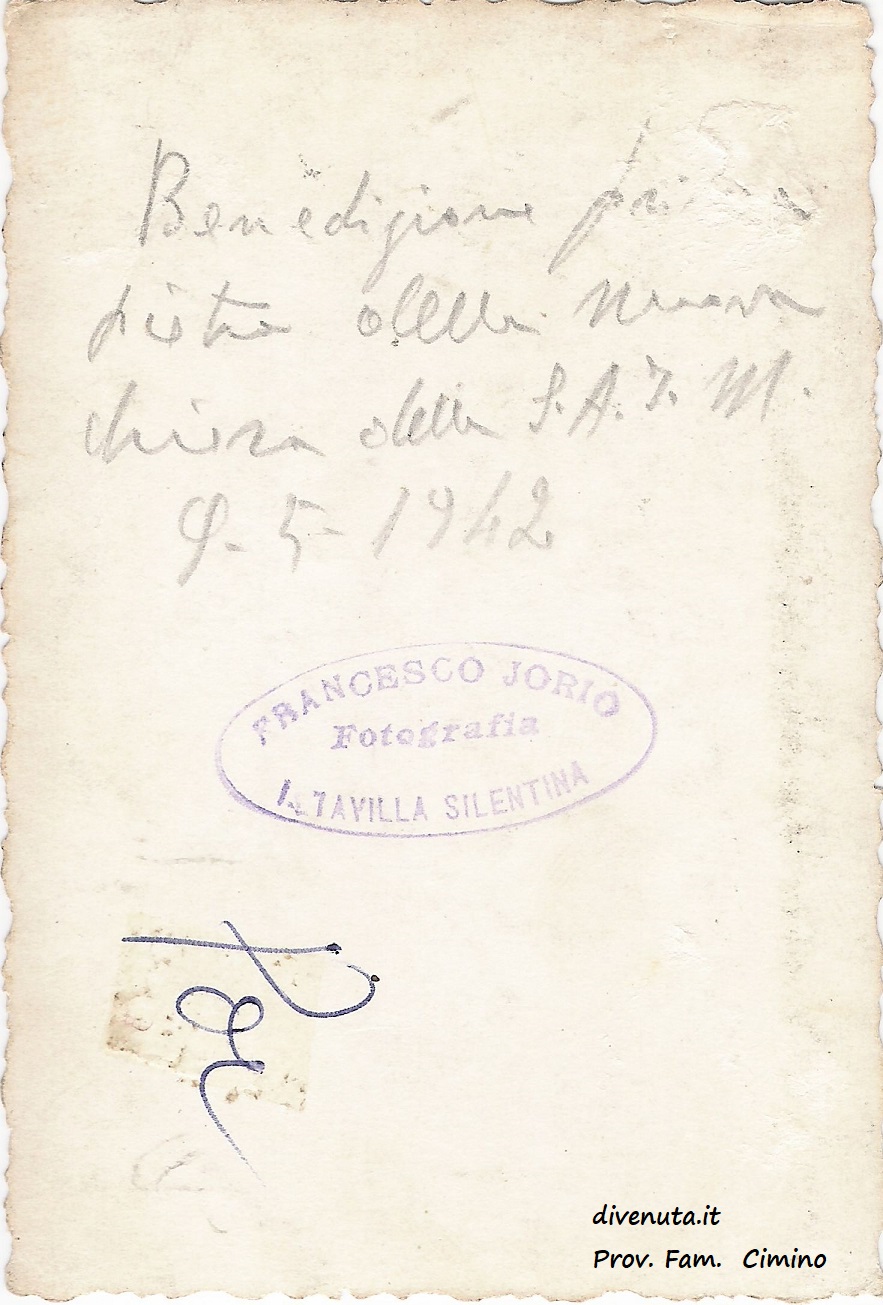 Benedizione prima
pietra della nuova
chiesa della S.A.I.M.
9-5-1942
FRANCESCO JORIO
Fotografia
ALTAVILLA SILENTINA
divenuta.it
Prov. Fam. Cimino